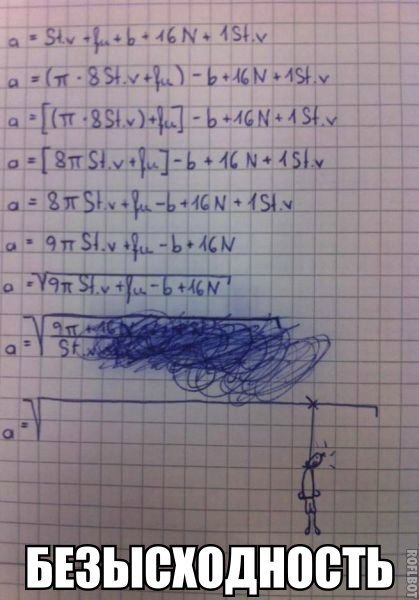 a = St.v + fu + b + 16N + 1St.v
a = (π · 8St.v + fu) - b + 16N + 1St.v
a = [(π · 8St.v) + fu] - b + 16N + 1St.v
a = [8π St.v + fu] - b + 16N + 1St.v
a = 8π St.v + fu - b + 16N + 1St.v
a = 9π St.v + fu - b + 16N
a = √9π St.v + fu - b + 16N
a = √ 9π + 16
St.v
a = √
БЕЗЫСХОДНОСТЬ
ROFLBOT